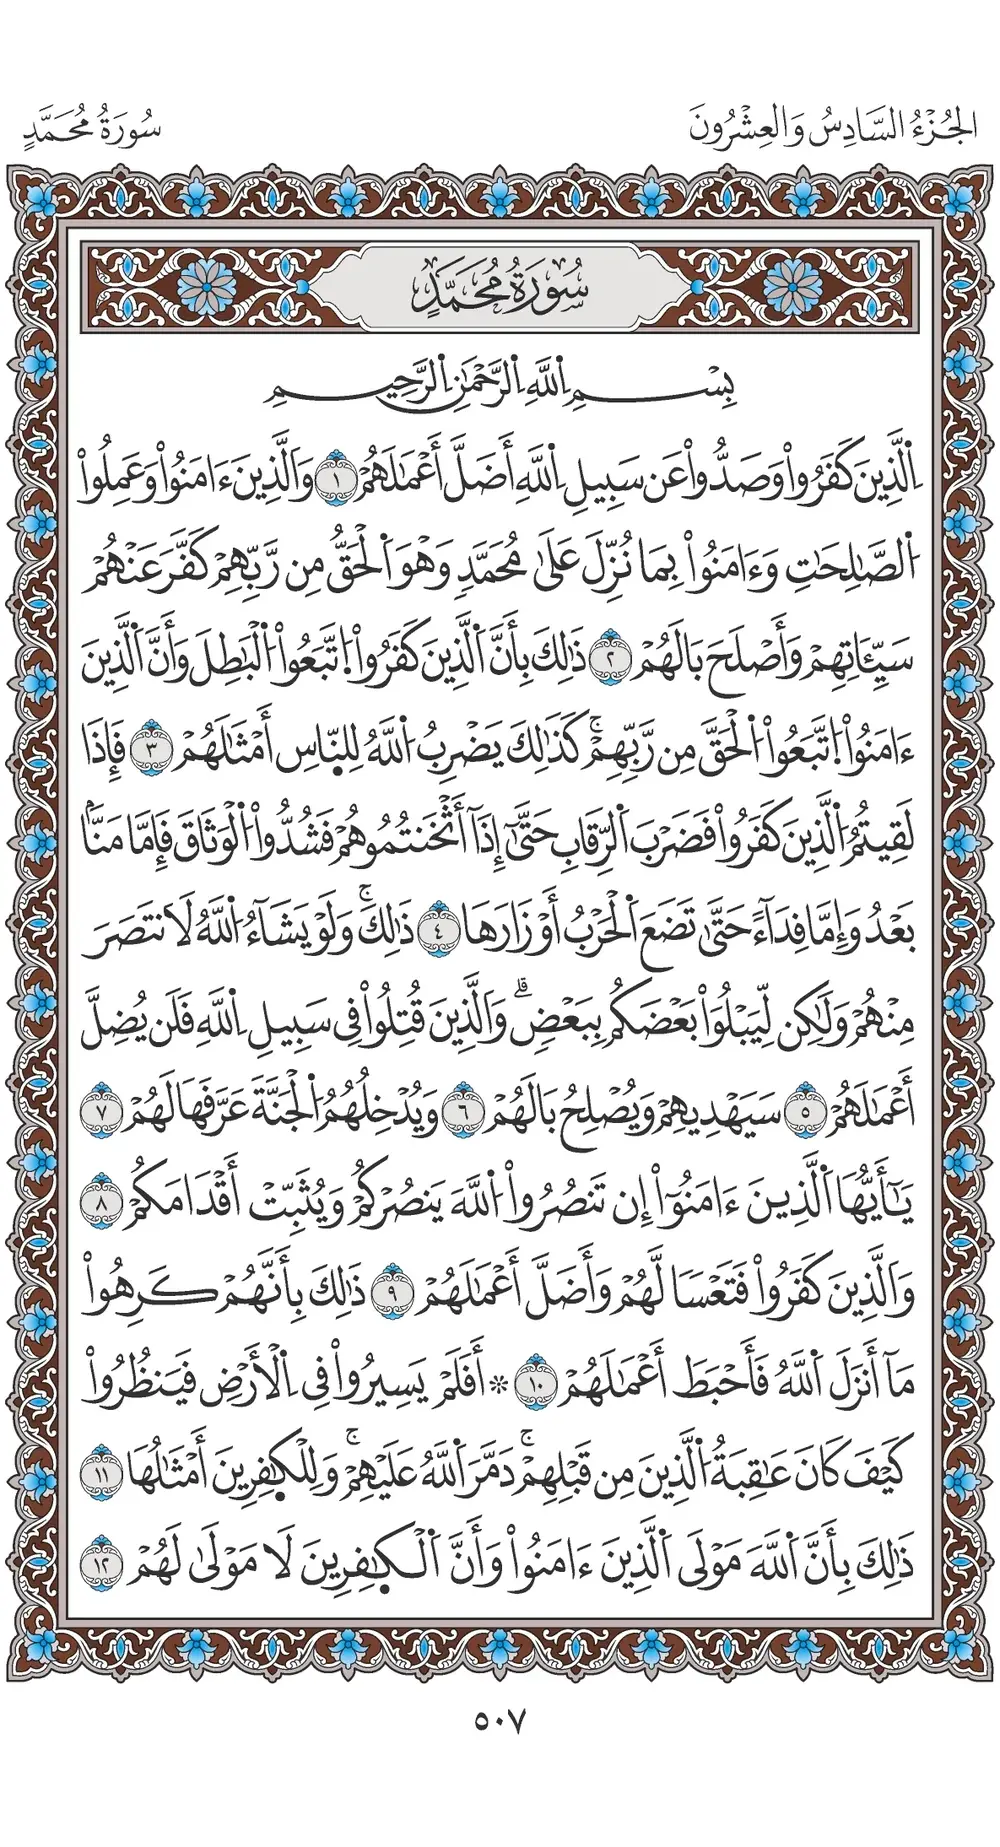 الجُزْءُ السَّادِسُ وَالعِشْرُونَ
سُورَةُ مُحَمَّدٍ
سُورَةُ مُحَمَّدٍ
بِسْمِ اِ۬للَّهِ اِ۬لرَّحْمَٰنِ اِ۬لرَّحِيمِ
اِ۬لَّذِينَ كَفَرُواْ وَصَدُّواْ عَن سَبِيلِ اِ۬للَّهِ أَضَلَّ أَعْمَٰلَهُمْ ١ وَالَّذِينَ ءَامَنُواْ وَعَمِلُواْ
اُ۬لصَّٰلِحَٰتِ وَءَامَنُواْ بِمَا نُزِّلَ عَلَىٰ مُحَمَّدٖ وَهْوَ اَ۬لْحَقُّ مِن رَّبِّهِمْ كَفَّرَ عَنْهُمْ
سَيِّـَٔاتِهِمْ وَأَصْلَحَ بَالَهُمْ ٢ ذَٰلِكَ بِأَنَّ اَ۬لَّذِينَ كَفَرُواْ اُ۪تَّبَعُواْ اُ۬لْبَٰطِلَ وَأَنَّ اَ۬لَّذِينَ
ءَامَنُواْ اُ۪تَّبَعُواْ اُ۬لْحَقَّ مِن رَّبِّهِمْۚ كَذَٰلِكَ يَضْرِبُ اُ۬للَّهُ لِلنَّاسِ أَمْثَٰلَهُمْ ٣ فَإِذَا
لَقِيتُمُ اُ۬لَّذِينَ كَفَرُواْ فَضَرْبَ اَ۬لرِّقَابِ حَتَّىٰٓ إِذَآ أَثْخَنتُمُوهُمْ فَشُدُّواْ اُ۬لْوَثَاقَ فَإِمَّا مَنَّۢا
بَعْدُ وَإِمَّا فِدَآءً حَتَّىٰ تَضَعَ اَ۬لْحَرْبُ أَوْزَارَهَا ٤ ذَٰلِكَۚ وَلَوْ يَشَآءُ اُ۬للَّهُ لَانتَصَرَ
مِنْهُمْ وَلَٰكِن لِّيَبْلُوَاْ بَعْضَكُم بِبَعْضٖۗ وَالَّذِينَ قُتِلُواْ فِي سَبِيلِ اِ۬للَّهِ فَلَن يُضِلَّ
أَعْمَٰلَهُمْ ٥ سَيَهْدِيهِمْ وَيُصْلِحُ بَالَهُمْ ٦ وَيُدْخِلُهُمُ اُ۬لْجَنَّةَ عَرَّفَهَا لَهُمْ ٧
يَٰٓأَيُّهَا اَ۬لَّذِينَ ءَامَنُوٓاْ إِن تَنصُرُواْ اُ۬للَّهَ يَنصُرْكُمْ وَيُثَبِّتْ أَقْدَامَكُمْ ٨
وَالَّذِينَ كَفَرُواْ فَتَعْسٗا لَّهُمْ وَأَضَلَّ أَعْمَٰلَهُمْ ٩ ذَٰلِكَ بِأَنَّهُمْ كَرِهُواْ
مَآ أَنزَلَ اَ۬للَّهُ فَأَحْبَطَ أَعْمَٰلَهُمْ ١٠ ۞ أَفَلَمْ يَسِيرُواْ فِي اِ۬لْأَرْضِ فَيَنظُرُواْ
كَيْفَ كَانَ عَٰقِبَةُ اُ۬لَّذِينَ مِن قَبْلِهِمْۚ دَمَّرَ اَ۬للَّهُ عَلَيْهِمْۚ وَلِلْكٰ۪فِرِينَ أَمْثَٰلُهَا ١١
ذَٰلِكَ بِأَنَّ اَ۬للَّهَ مَوْلَى اَ۬لَّذِينَ ءَامَنُواْ وَأَنَّ اَ۬لْكٰ۪فِرِينَ لَا مَوْلَىٰ لَهُمْ ١٢
٥٠٧